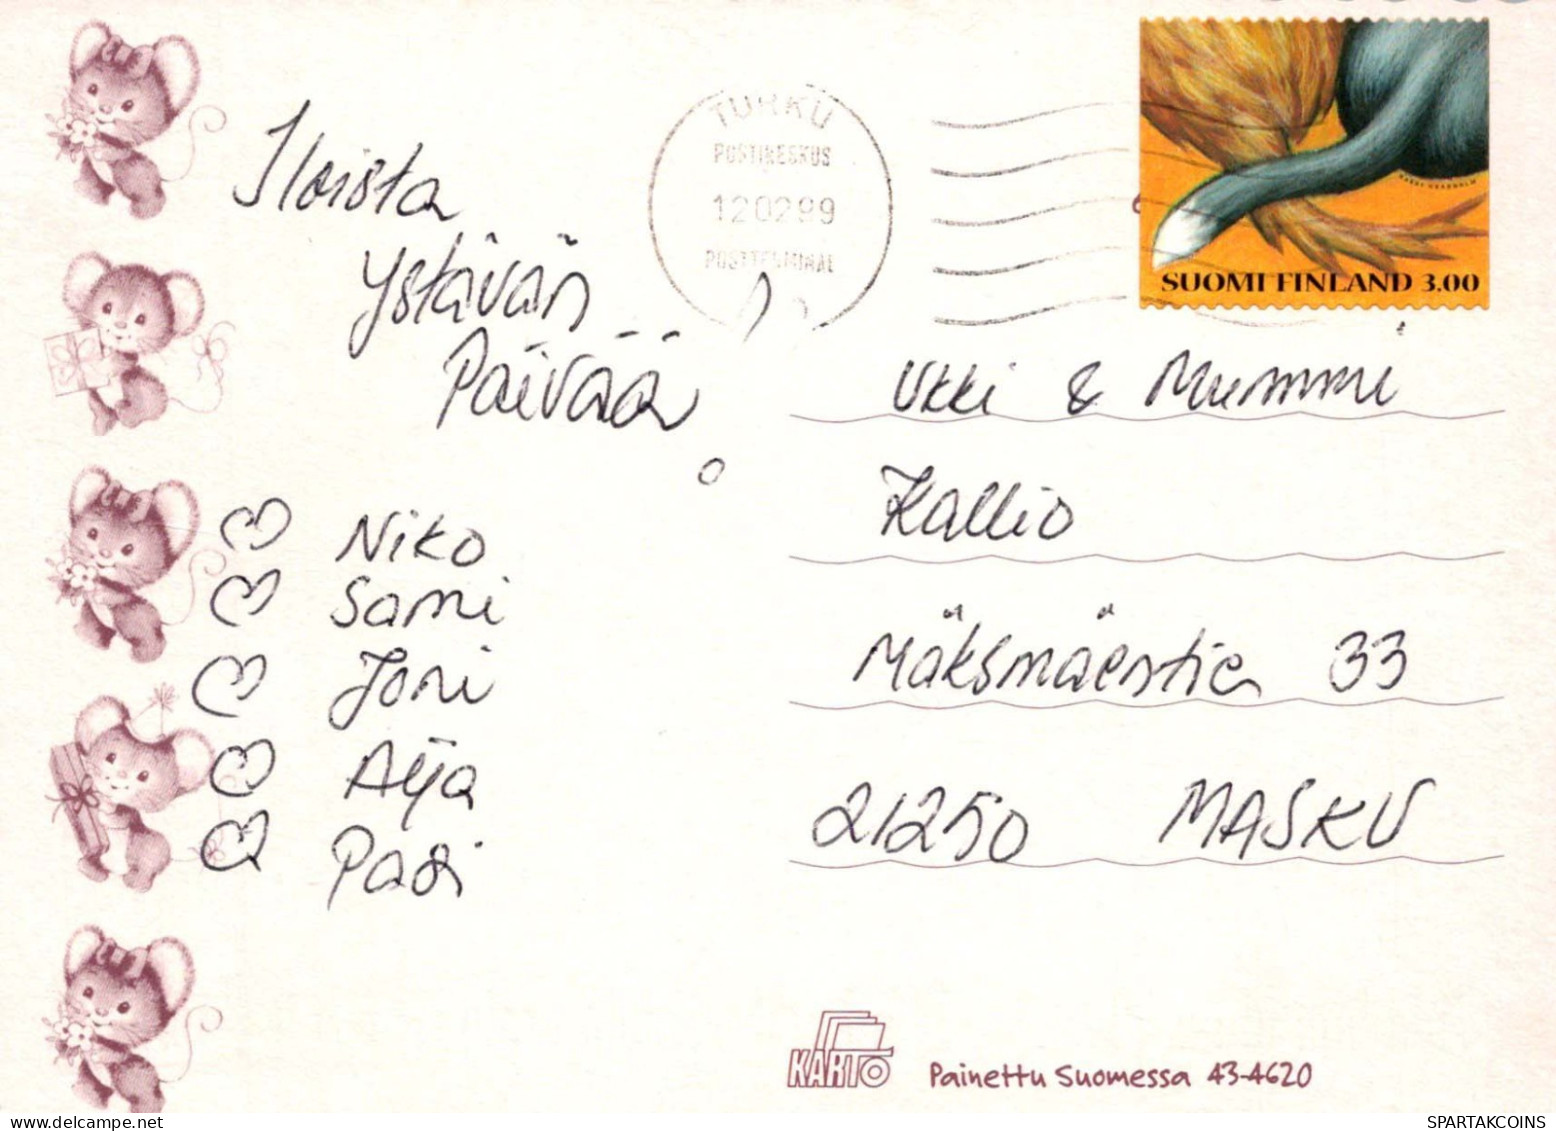 TURKU
POSTIKESKUS
12.02.99
POSTTERMINAL
SUOMI FINLAND 3.00
Iloista
Ystävän
Päivää
Niko
Sami
Joni
Aija
Pasi
Ukki & Mummi
Kallio
Mäksmäentie 33
21250 MASKU
KARTO
Painettu Suomessa 43-4620
SPARTAKCOINS